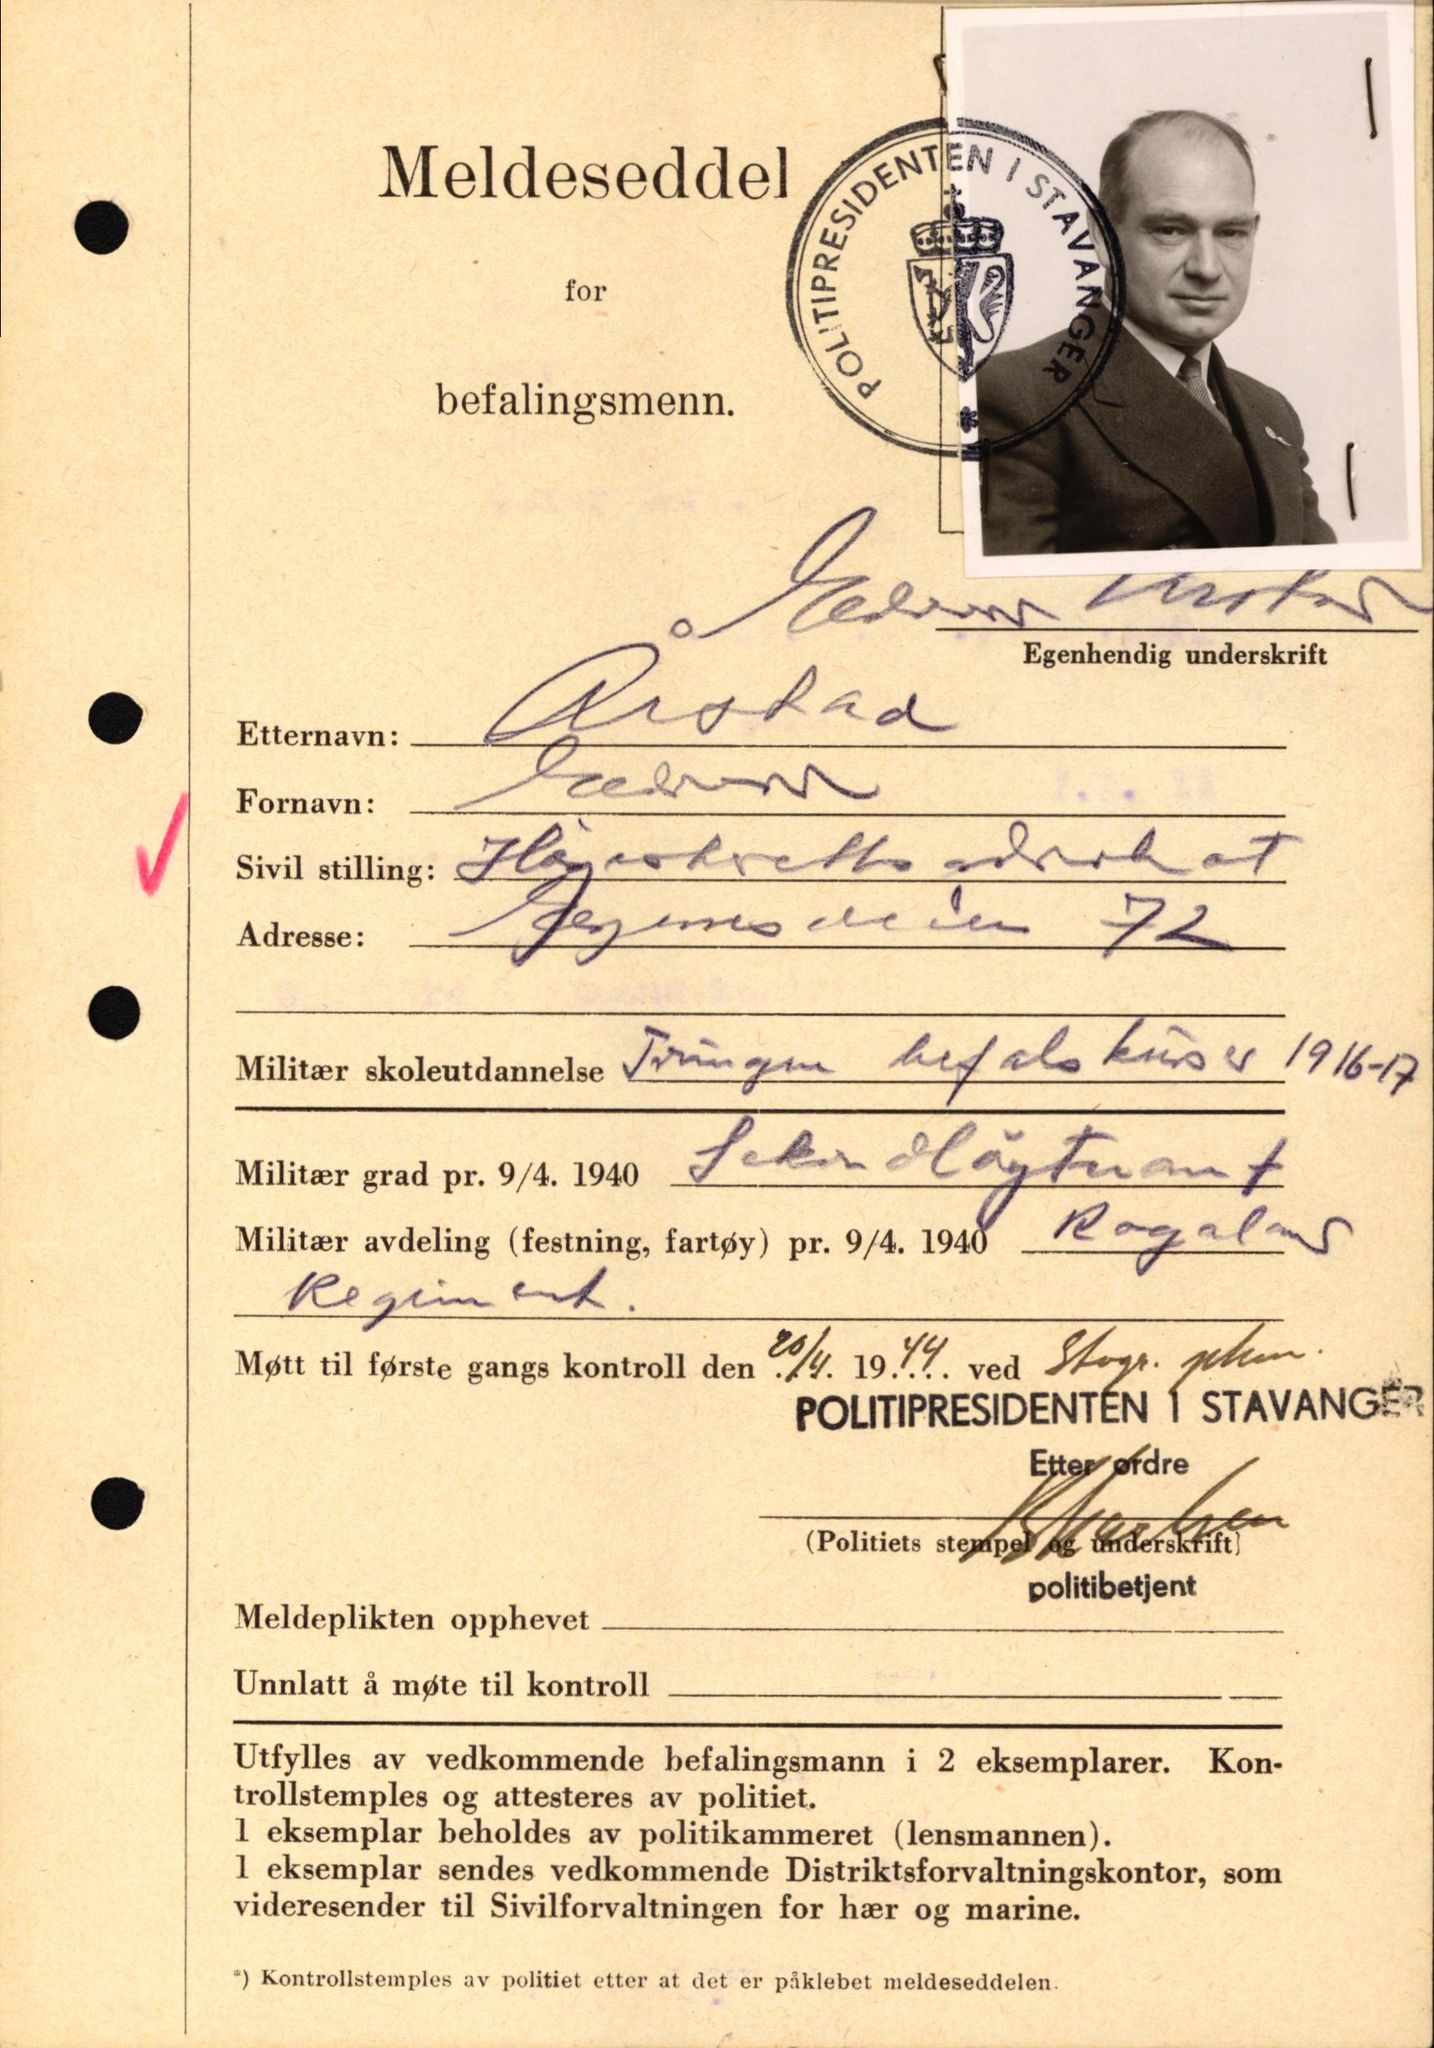 Meldeseddel
for
befalingsmenn.
POLITIPRESIDENTEN I STAVANGER
Egenhendig underskrift
Etternavn: Årstad
Fornavn:
Sivil stilling: Høiesterettsadvokat
Adresse: 72
Militær skoleutdannelse befalskurser 1916-17
Militær grad pr. 9/4. 1940 Sekondløytnant
Militær avdeling (festning, fartøy) pr. 9/4. 1940 Rogaland
Regiment.
Møtt til første gangs kontroll den 20/4. 1944 ved
POLITIPRESIDENTEN I STAVANGER
Etter ordre
(Politiets stempel og underskrift)
politibetjent
Meldeplikten opphevet
Unnlatt å møte til kontroll
Utfylles av vedkommende befalingsmann i 2 eksemplarer. Kon-
trollstemples og attesteres av politiet.
1 eksemplar beholdes av politikammeret (lensmannen).
1 eksemplar sendes vedkommende Distriktsforvaltningskontor, som
videresender til Sivilforvaltningen for hær og marine.
*) Kontrollstemples av politiet etter at det er påklebet meldeseddelen.